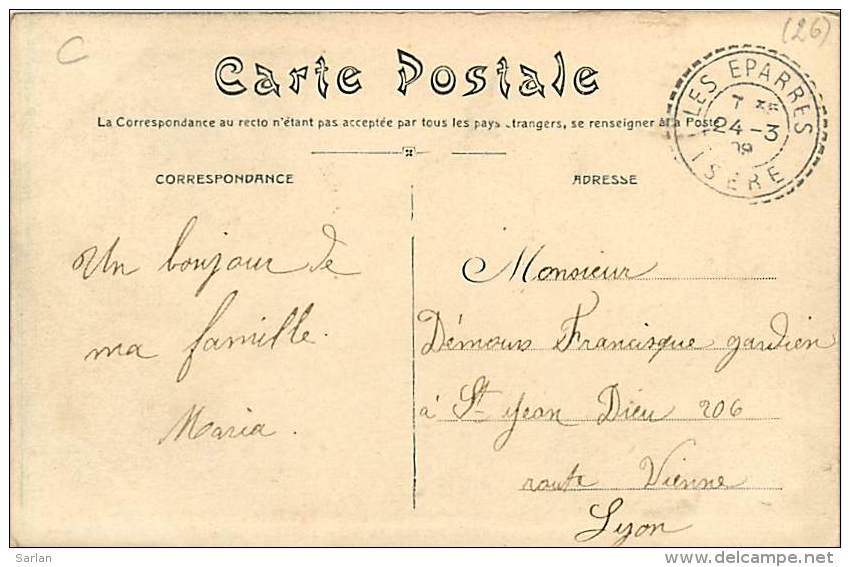 C
(26)
Carte Postale
La Correspondance au recto n'étant pas acceptée par tous les pays étrangers, se renseigner à la Poste
LES EPARRES
24-3
09
ISERE
CORRESPONDANCE
Un bonjour de
ma famille.
Maria.
ADRESSE
Monsieur
Démours Francisque gardien
à St Jean Dieu 206
route Vienne
Lyon
Sarlan
www.delcampe.net